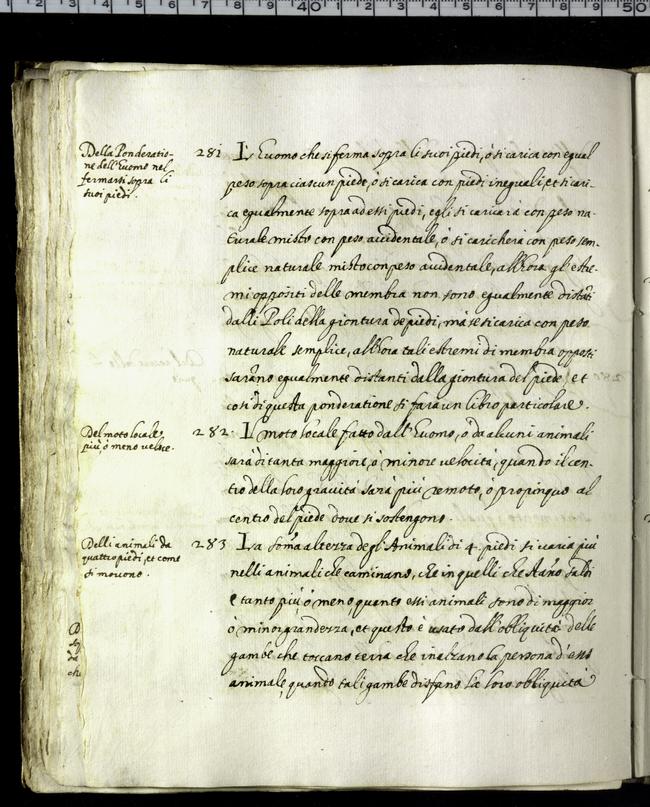 Della Ponderatio-
ne dell'Euomo nel
fermarsi sopra li
suoi piedi.
281 L'Euomo che si ferma sopra li suoi piedi, ò si carica con equal
peso sopra ciascun piede, ò si carica con piedi inequali, et si cari-
ca egualmente sopra ad essi piedi, egli si caricarà con peso na-
turale misto con peso accidentale, ò si caricherà con peso sem-
plice naturale misto con peso accidentale, allhora gl'estre-
mi oppositi delle membra non sono egualmente distāti
dalli Poli della giontura de piedi, mà se si carica con peso
naturale semplice, allhora tali estremi di membra oppositi
sarāno egualmente distanti dalla giontura del piede et
così di questa ponderatione si farà un libro particolare.
Del moto locale,
più, ò meno veloce.
282. Il moto locale fatto dall'Euomo, ò da alcuni animali
sarà di tanta maggiore, ò minore velocità, quando il cen-
tro della loro gravità sarà più remoto, ò propinquo al
centro del piede dove si sostengono.
Delli animali da
quattro piedi, et come
si movono.
283 La soma altezza degl'Animali di 4. piedi si varia più
nelli animali che caminano, che in quelli che stāno saldi
e tanto più, ò meno, quanto essi animali sono di maggior
ò minor grandezza, et questo è usato dall'obliquità delle
gambe che toccano terra che inalzano la persona d'esso
animale, quando tali gambe disfano la loro obliquità